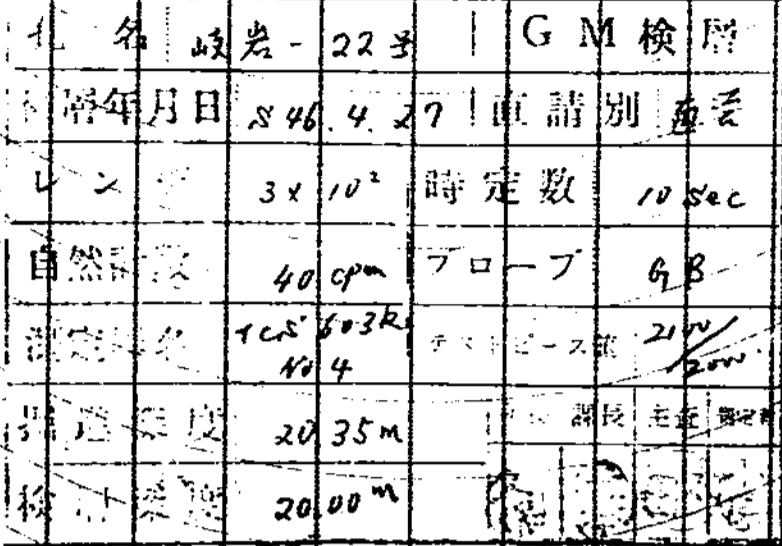 孔名 岐岩-22号 GM検層
検層年月日 S46.4.27 直請別 直営
レンジ 3x10² 時定数 10 sec
自然計数 40 cpm プローブ GB
測定器名 TCS 603 テストピース値 2100/2000
No 4
掘進深度 20.35m 課長 主査
検層深度 20.00m